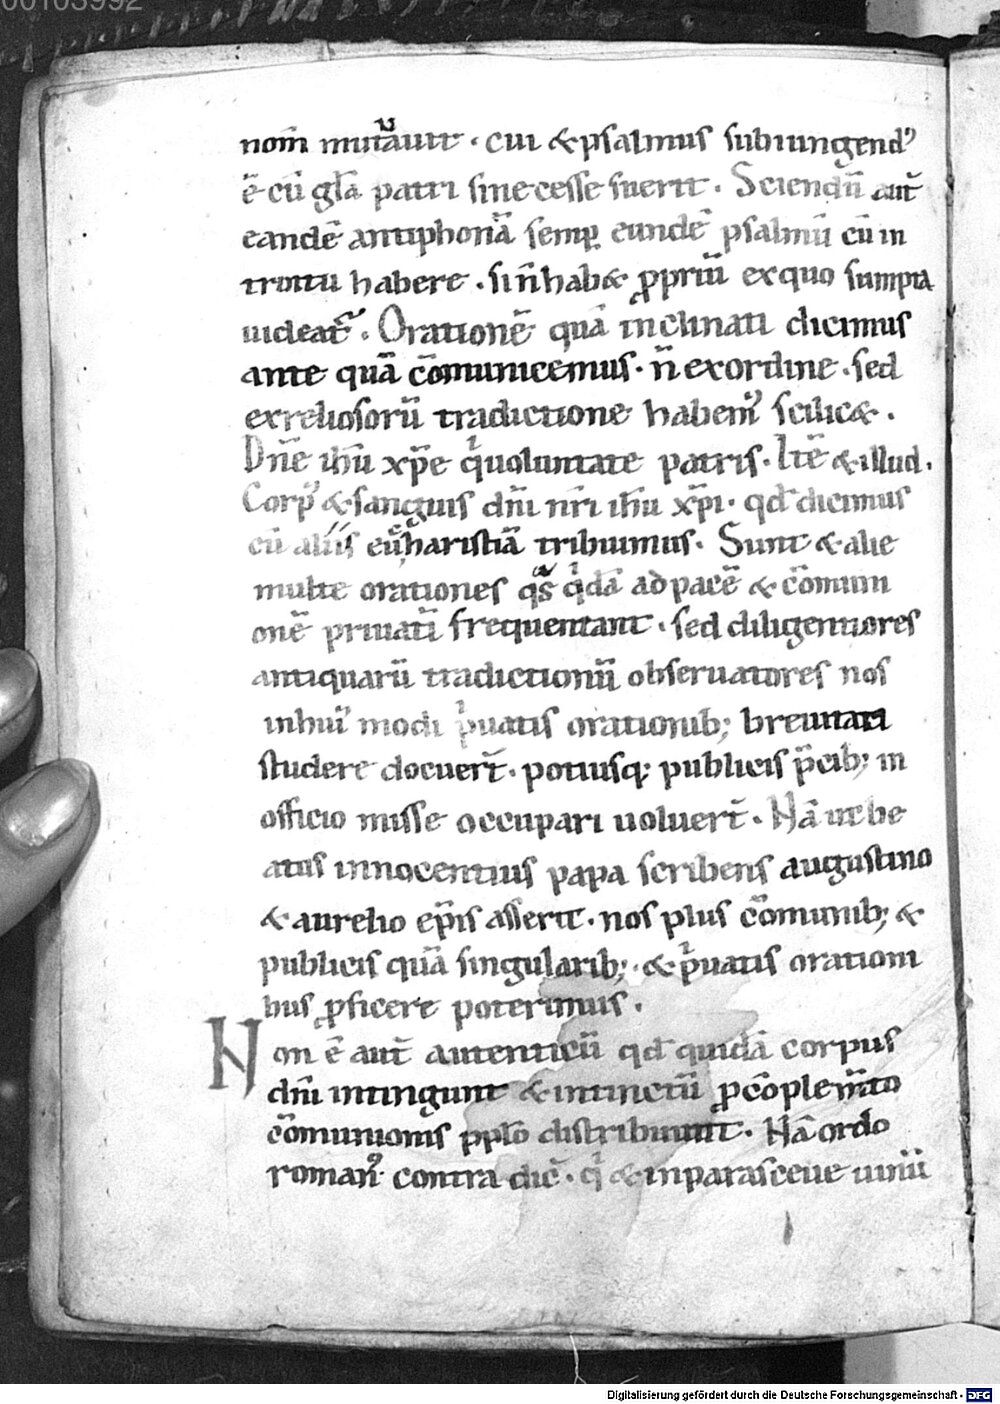 00103992
nom̄ mutauit · cui & psalmus subiungend᾽
ē cū gl̄a patri si necesse fuerit · Sciendū aut̄
eandē antiphonā semp̱ eundē psalmū cū in
troitu habere · si n̄ hab& ꝓpriū ex quo sumpta
uideat᷑ · Orationē quā inclinati dicimus
ante quā cōmunicemus · n̄ ex ordine · sed
ex religiosorū tradictione habem᾽ scilic& ·
Dn̄e ih̄u xp̄e qͥ uoluntate patris · Itē & illud ·
Corp᾽ & sanguis dn̄i nr̄i ih̄u xp̄i · qd̄ dicimus
cū aliis eucharistiā tribuimus · Sunt & alie
multe orationes qᵃs qͥdā ad pacē & cōmuni
onē priuati frequentant · sed diligentiores
antiquarū tradictionū obseruatores nos
in hui᾽ modi pͥuatis orationib; breuitati
studere docuer̄t · potiusq; publicis p̄cib; in
officio misse occupari uoluer̄t · Nā ut be
atus innocentius papa scribens augustino
& aurelio ep̄is asserit · nos plus cōmunib; &
publicis quā singularib; · & pͥuatis orationi
bus ꝓficere poterimus ·
Non ē aut̄ autenticū qd̄ quidā corpus
dn̄i intingunt & intinctū ꝓ cōplem̄to
cōmunionis pplō distribuunt · Nā ordo
roman᾽ contra dic̄ · qͥ & in parasceue uinū
Digitalisierung gefördert durch die Deutsche Forschungsgemeinschaft - DFG